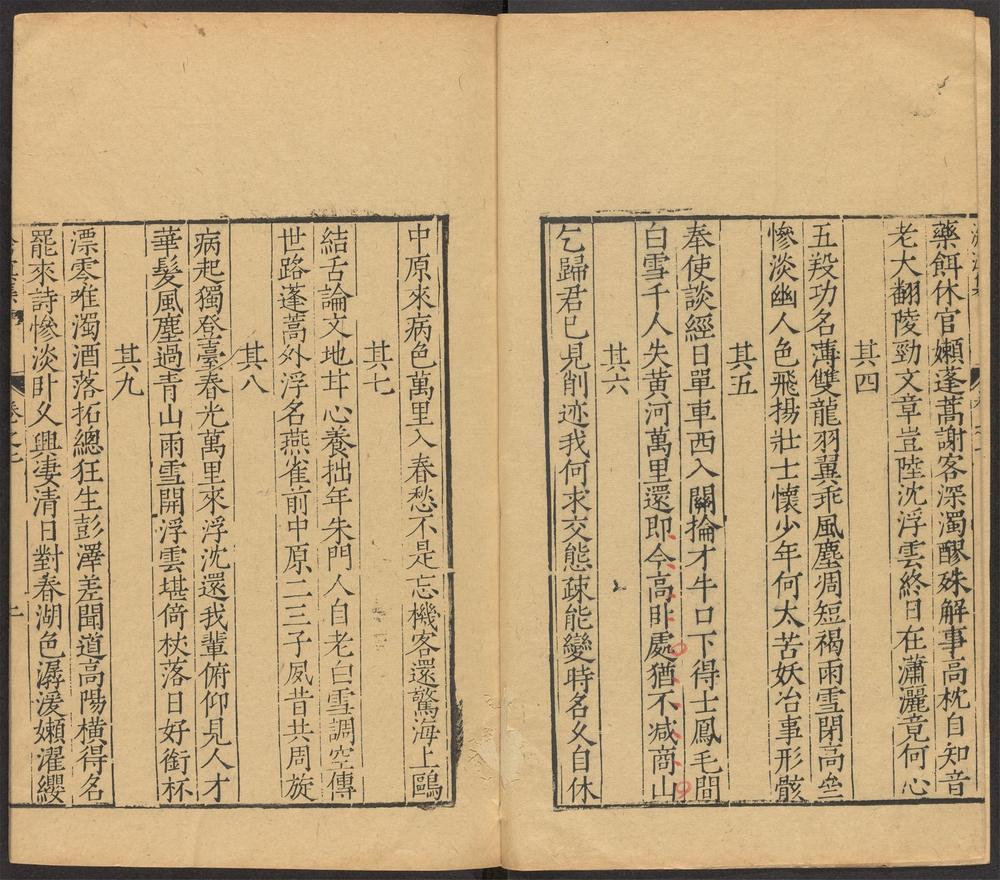 藥餌休官嬾蓬蒿謝客深濁醪殊解事高枕自知音
老大翻陵勁文章豈陸沈浮雲終日在瀟灑竟何心
其四
五羖功名薄雙龍羽翼乖風塵凋短褐雨雪閉高齋
慘淡幽人色飛揚壯士懷少年何太苦妖冶事形骸
其五
奉使談經日單車西入關掄才牛口下得士鳳毛間
白雪千人失黃河萬里還即今高臥處猶不減商山
其六
乞歸君已見削迹我何求交態疎能變時名久自休
中原來病色萬里入春愁不是忘機客還驚海上鷗
其七
結舌論文地甘心養拙年朱門人自老白雪調空傳
世路蓬蒿外浮名燕雀前中原二三子夙昔共周旋
其八
病起獨登臺春光萬里來浮沈還我輩俯仰見人才
華髮風塵過青山雨雪開浮雲堪倚杖落日好銜杯
其九
漂零唯濁酒落拓總狂生彭澤差聞道高陽橫得名
罷來詩慘淡臥久興凄清日對春湖色潺湲嬾濯纓
卷之七